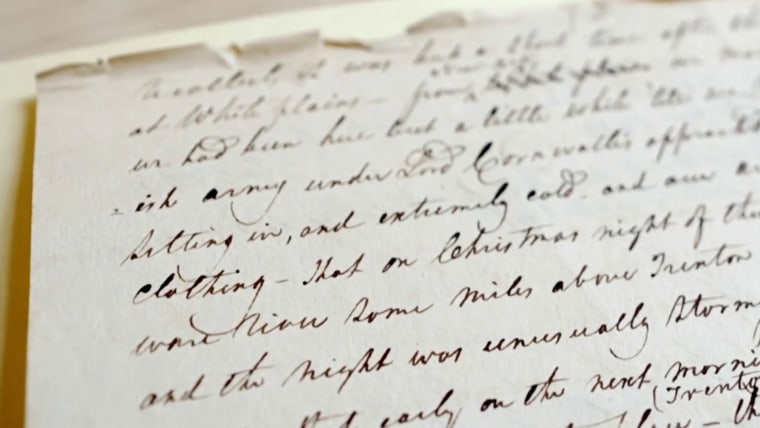 recollect, it was but a short time after the
at White plains - from
we had been here but a little while the
-ish army under Lord Cornwallis
setting in, and extremely cold. and our
clothing - That on Christmas night of the
ware River some miles above Trenton
and the night was unusually storm
early on the next morni
(Trento